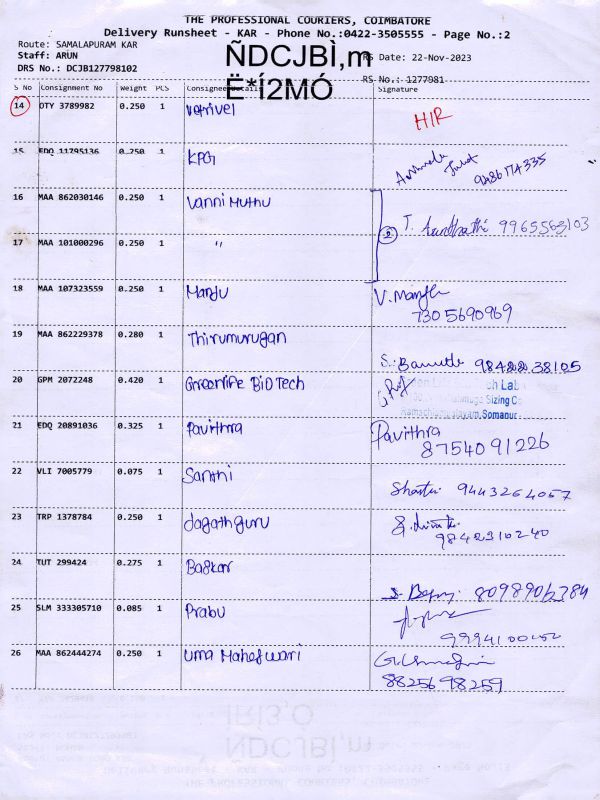 THE PROFESSIONAL COURIERS, COIMBATORE
Delivery Runsheet - KAR - Phone No.:0422-3505555 - Page No.:2
Route: SAMALAPURAM KAR
Staff: ARUN
ÑDCJBÌ,m
RS Date: 22-Nov-2023
DRS No.: DCJB127798102
Ë*Í2MÓ
RS No.: 1277981
S No Consignment No Weight PCS Consignee Details Signature
14 DTY 3789982 0.250 1 Vetrivel HIR
15 EDQ 11795136 0.250 1 KPG 9486174335
16 MAA 862030146 0.250 1 Vanni Muthu
17 MAA 101000296 0.250 1 " 2 T. 9965563103
18 MAA 107323559 0.250 1 Manju V. Manju
7305690969
19 MAA 862229378 0.280 1 Thirumurugan
S. 98422 38105
20 GPM 2072248 0.420 1 Greenlife BioTech Lab
Sizing
Somanur
21 EDQ 20891036 0.325 1 Pavithra Pavithra
8754091226
22 VLI 7005779 0.075 1 Santhi
9443264057
23 TRP 1378784 0.250 1 Jagathguru
9842310240
24 TUT 299424 0.275 1 Baskar
8098906384
25 SLM 333305710 0.085 1 Prabu
26 MAA 862444274 0.250 1 Uma Maheswari
8825698259